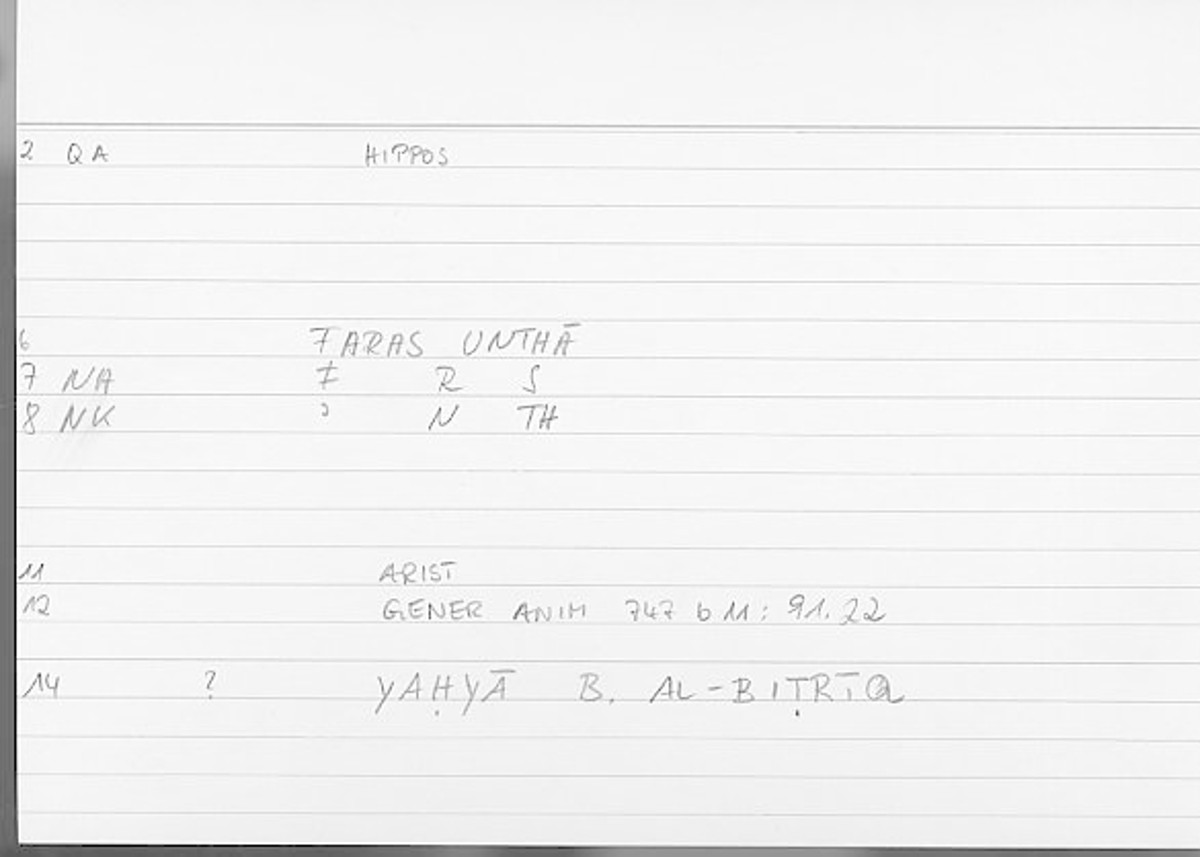 2 QA HIPPOS
6 FARAS UNTHĀ
7 NA F R S
8 NK ʾ N TH
11 ARIST
12 GENER ANIM 747 b 11 : 91.22
14 ? YAḤYĀ B. AL-BIṬRĪQ